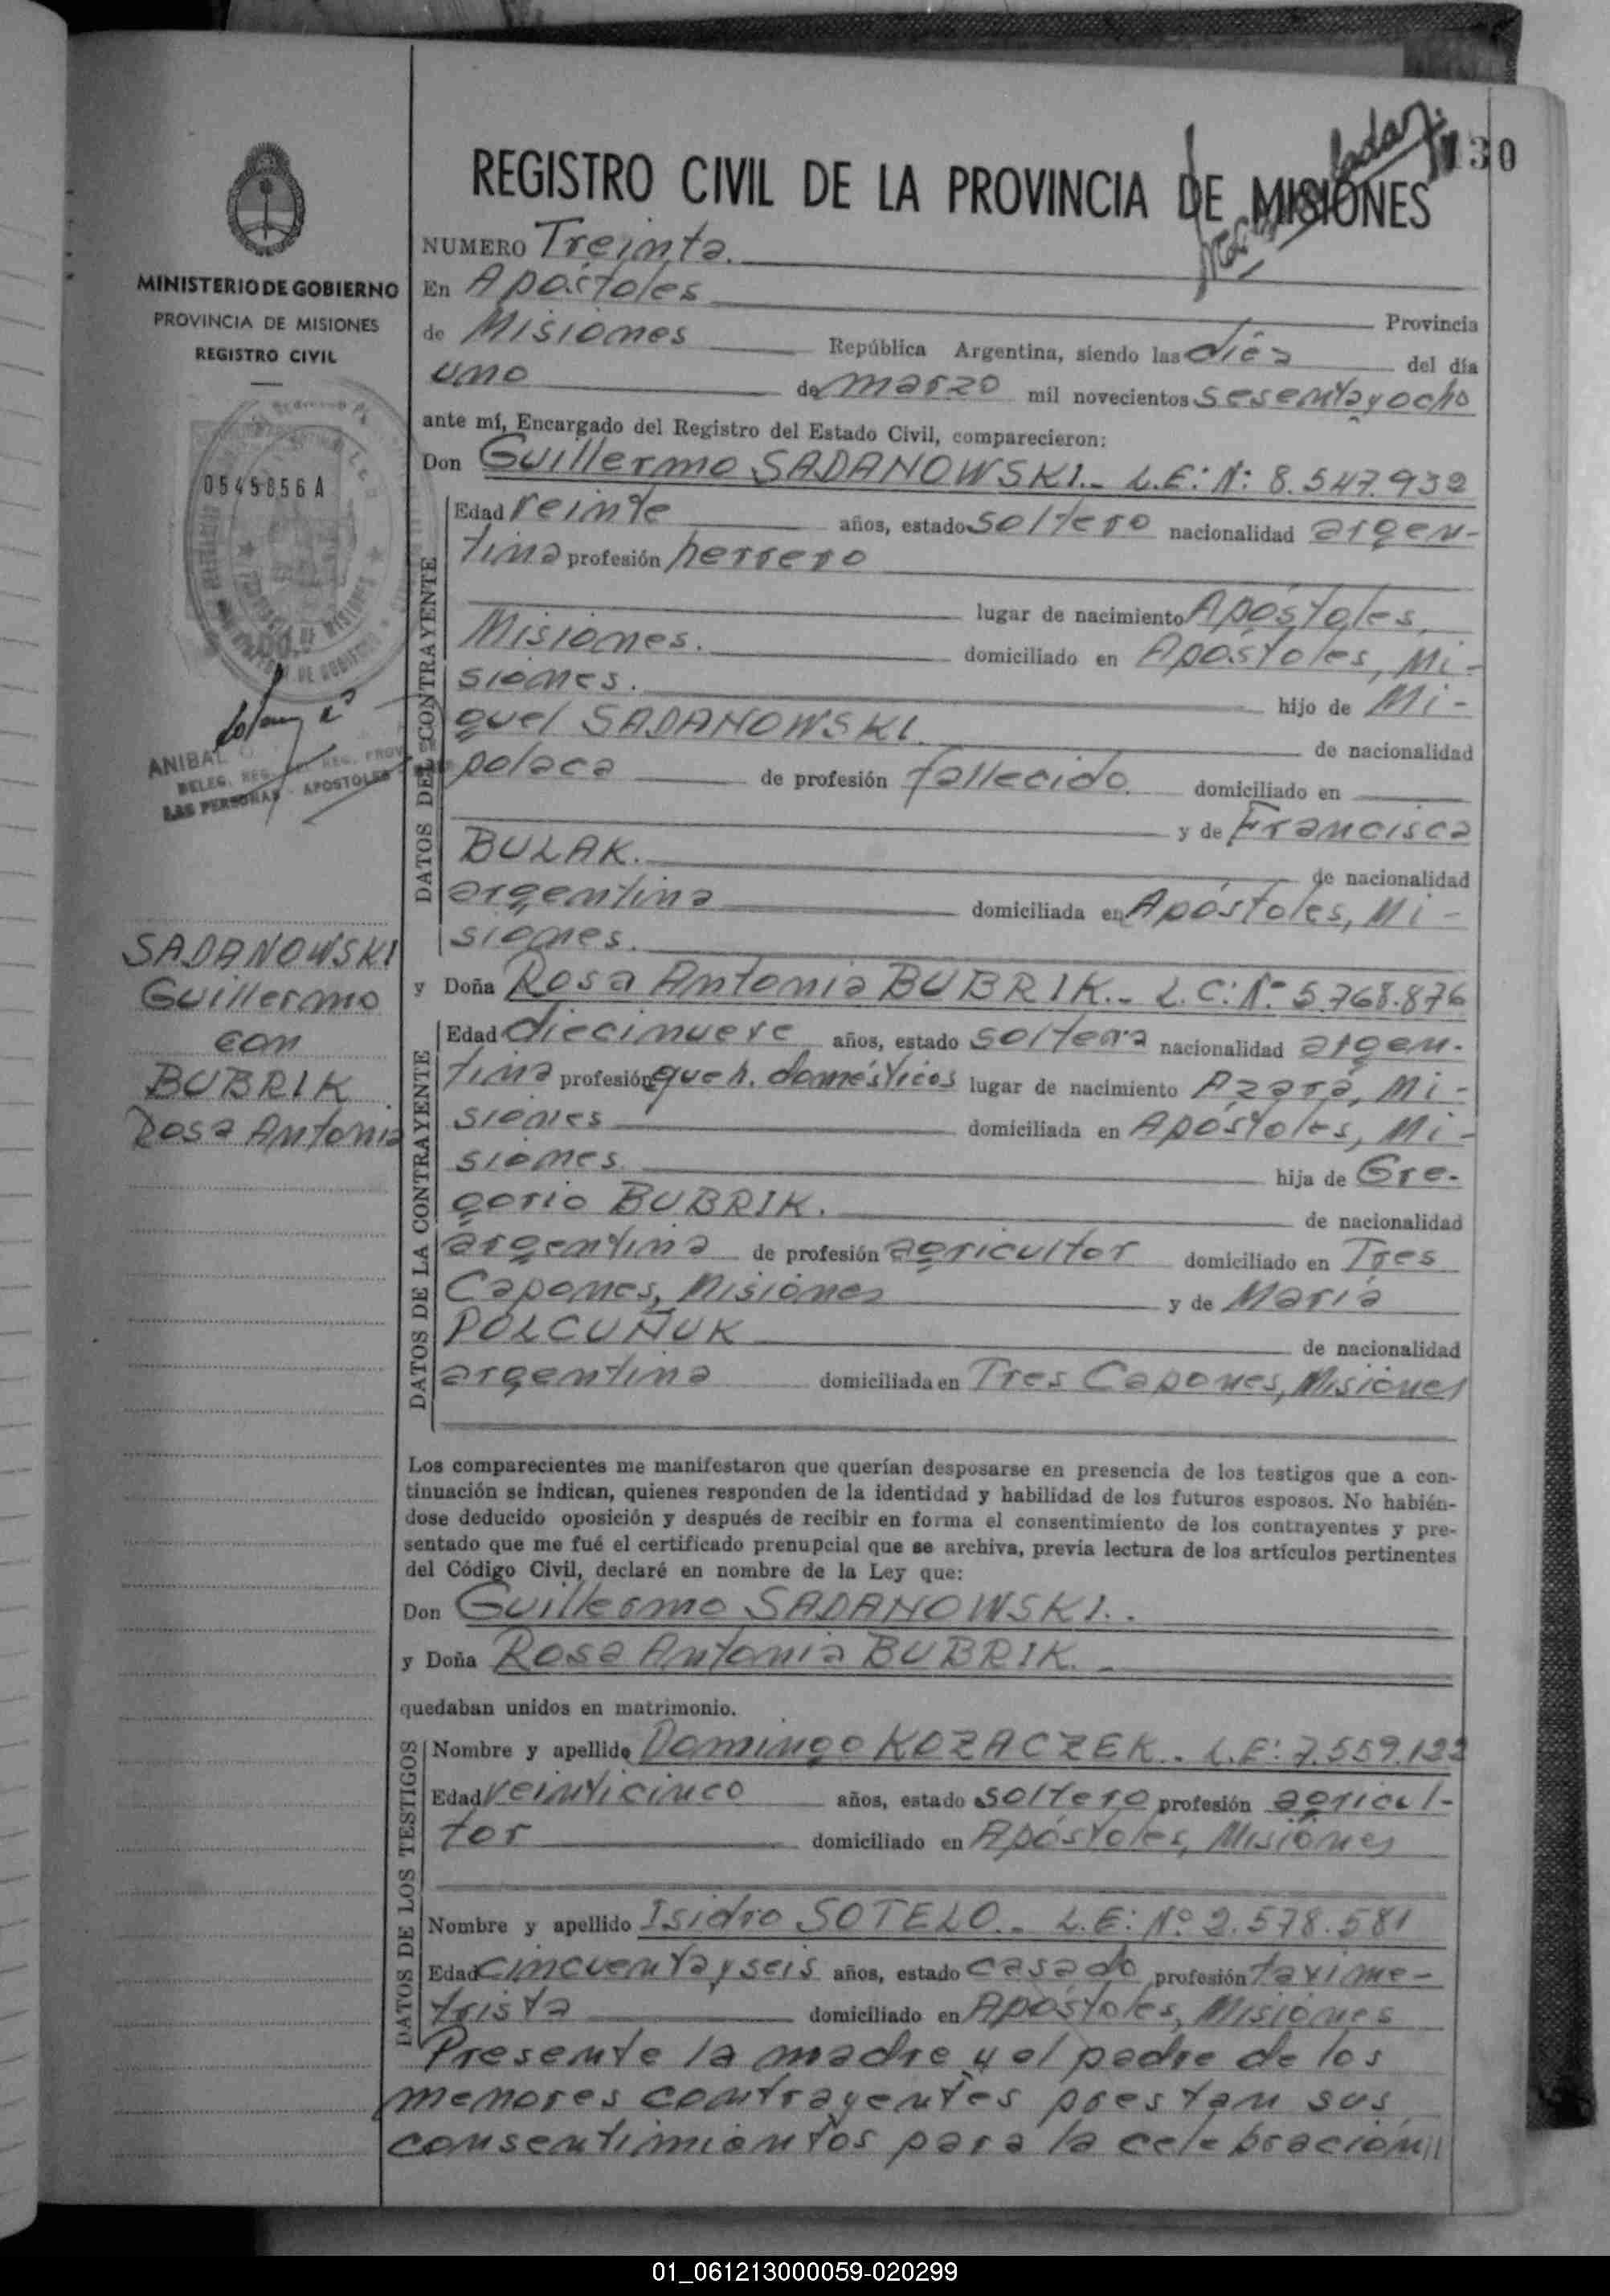 130
REGISTRO CIVIL DE LA PROVINCIA DE MISIONES
NUMERO Treinta.
En Apóstoles Provincia
de Misiones República Argentina, siendo las diez del día
uno de marzo mil novecientos sesenta y ocho
ante mí, Encargado del Registro del Estado Civil, comparecieron:
Don Guillermo SADANOWSKI.- L.E: N: 8.547.932
Edad veinte años, estado soltero nacionalidad argen-
tina profesión herrero
lugar de nacimiento Apóstoles,
Misiones. domiciliado en Apóstoles, Mi-
siones. hijo de Mi-
guel SADANOWSKI. de nacionalidad
polaca de profesión fallecido. domiciliado en
y de Francisca
BULAK. de nacionalidad
argentina domiciliada en Apóstoles, Mi-
siones.
y Doña Rosa Antonia BUBRIK.- L.C: Nº 5.768.876
Edad diecinueve años, estado soltera nacionalidad argen-
tina profesión queh. domésticos lugar de nacimiento Azara, Mi-
siones domiciliada en Apóstoles, Mi-
siones. hija de Gre-
gorio BUBRIK. de nacionalidad
argentina de profesión agricultor domiciliado en Tres
Capones, Misiones y de María
POLCUÑUK de nacionalidad
argentina domiciliada en Tres Capones, Misiones
Los comparecientes me manifestaron que querían desposarse en presencia de los testigos que a con-
tinuación se indican, quienes responden de la identidad y habilidad de los futuros esposos. No habién-
dose deducido oposición y después de recibir en forma el consentimiento de los contrayentes y pre-
sentado que me fué el certificado prenupcial que se archiva, previa lectura de los artículos pertinentes
del Código Civil, declaré en nombre de la Ley que:
Don Guillermo SADANOWSKI..
y Doña Rosa Antonia BUBRIK.-
quedaban unidos en matrimonio.
Nombre y apellido Domingo KOZACZEK.- L.E: 7.559.122
Edad veinticinco años, estado soltero profesión agricul-
tor domiciliado en Apóstoles, Misiones
Nombre y apellido Isidro SOTELO.- L.E: Nº 2.578.581
Edad cincuenta y seis años, estado casado profesión taxime-
trista domiciliado en Apóstoles, Misiones
Presente la madre y el padre de los
menores contrayentes prestan sus
consentimientos para la celebración//
DATOS DEL CONTRAYENTE
DATOS DE LA CONTRAYENTE
DATOS DE LOS TESTIGOS
MINISTERIO DE GOBIERNO
PROVINCIA DE MISIONES
REGISTRO CIVIL
0545856 A
ANIBAL
DELEG. REG. PROV.
LAS PERSONAS - APOSTOLES
SADANOWSKI
Guillermo
con
BUBRIK
Rosa Antonia
01_061213000059-020299